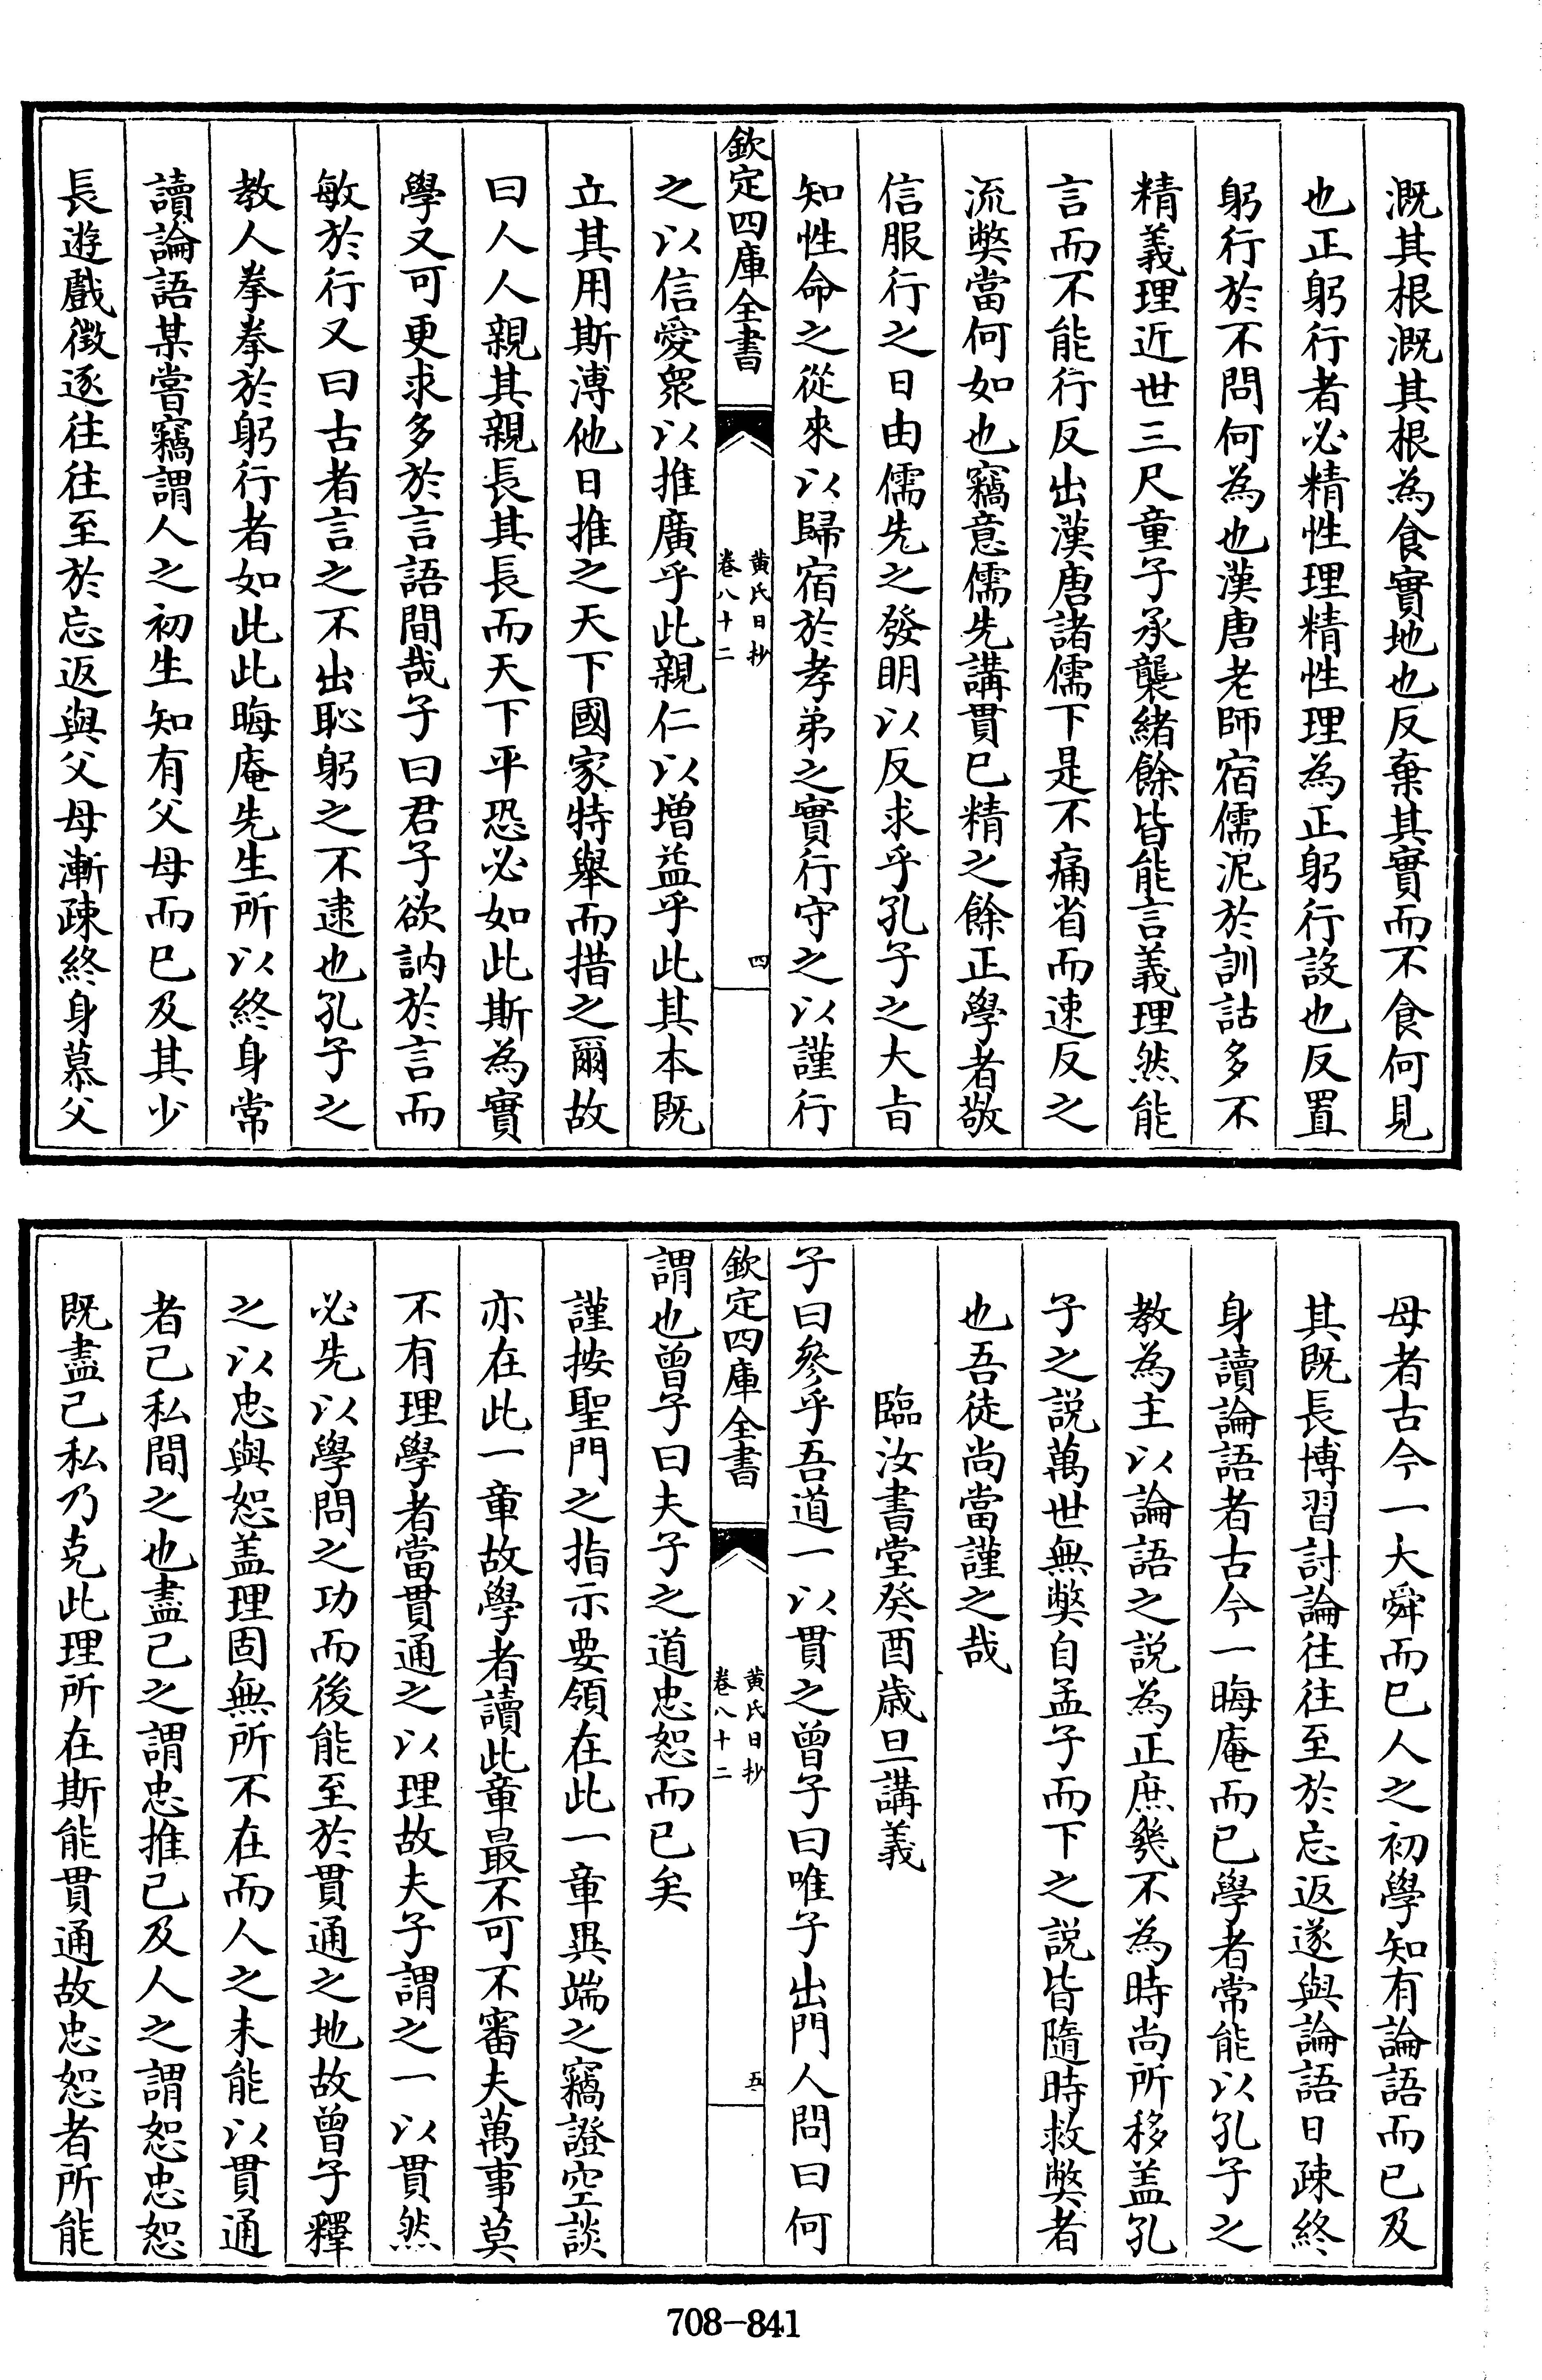 溉其根溉其根為食實地也反棄其實而不食何見
也正躬行者必精性理精性理為正躬行設也反置
躬行於不問何為也漢唐老師宿儒泥於訓詁多不
精義理近世三尺童子承襲緒餘皆能言義理然能
言而不能行反出漢唐諸儒下是不痛省而速反之
流弊當何如也竊意儒先講貫已精之餘正學者敬
信服行之日由儒先之發明以反求乎孔子之大㫖
知性命之從來以歸宿於孝弟之實行守之以謹行
欽定四庫全書
黃氏日抄
卷八十二
四
之以信愛衆以推廣乎此親仁以增益乎此其本既
立其用斯溥他日推之天下國家特舉而措之爾故
曰人人親其親長其長而天下平恐必如此斯為實
學又可更求多於言語間哉子曰君子欲訥於言而
敏於行又曰古者言之不出恥躬之不逮也孔子之
教人拳拳於躬行者如此此晦庵先生所以終身常
讀論語某嘗竊謂人之初生知有父母而已及其少
長遊戲徵逐往往至於忘返與父母漸疎終身慕父
母者古今一大舜而已人之初學知有論語而已及
其既長博習討論往往至於忘返遂與論語日疎終
身讀論語者古今一晦庵而已學者常能以孔子之
教為主以論語之説為正庶幾不為時尚所移盖孔
子之説萬世無弊自孟子而下之説皆隨時救弊者
也吾徒尚當謹之哉
臨汝書堂癸酉歲旦講義
子曰參乎吾道一以貫之曾子曰唯子出門人問曰何
欽定四庫全書
黃氏日抄
卷八十二
五
謂也曾子曰夫子之道忠恕而已矣
謹按聖門之指示要領在此一章異端之竊證空談
亦在此一章故學者讀此章最不可不審夫萬事莫
不有理學者當貫通之以理故夫子謂之一以貫然
必先以學問之功而後能至於貫通之地故曾子釋
之以忠與恕盖理固無所不在而人之未能以貫通
者己私間之也盡己之謂忠推己及人之謂恕忠恕
既盡己私乃克此理所在斯能貫通故忠恕者所能
708-841